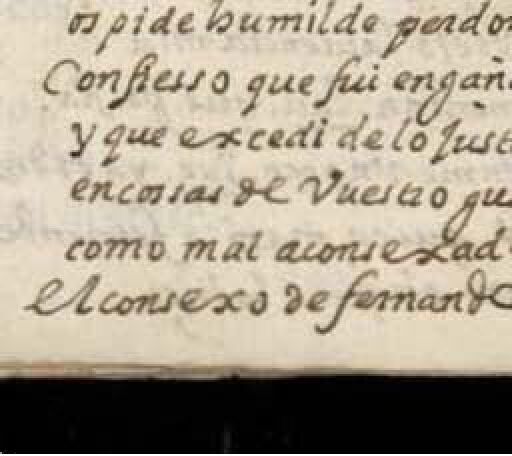 os pide humilde perdon
Confiesso que fui engaña
y que excedi de lo Just
en cossas de Vuestro gu
como mal aconsexad
el consexo de fernando